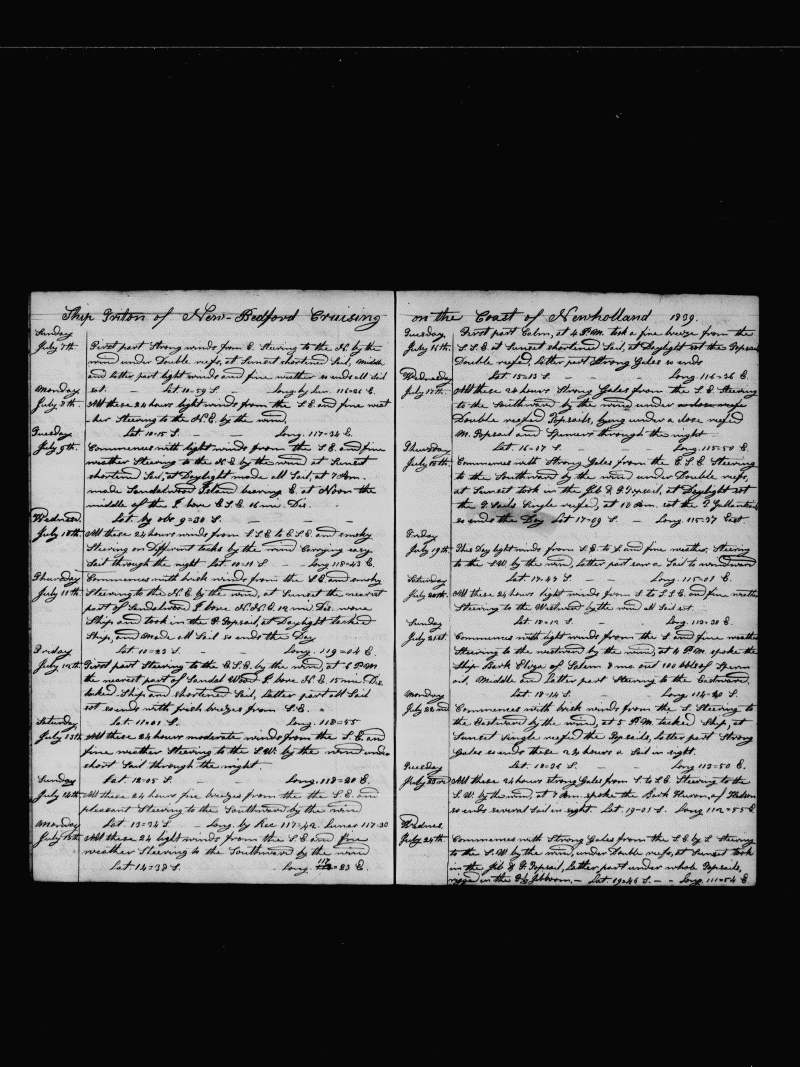 Ship Triton of New-Bedford Cruising
Sunday
July 7th First part Strong winds from E. Steering to the N. by the
wind under Double reefs, at Sunset shortend Sail, Middle
and latter part light winds and fine weather so ends all Sail
set. Lat. 10=59 S. Long by Lun 116=26 E.
Monday
July 8th All these 24 hour light winds from the S.E. and fine weat
-her Steering to the N.E. by the wind,
Tuesday Lat. 10=15 S. - - Long. 117=34 E.
July 9th Commences with light winds from the S.E. and fine
weather Steering to the N.E. by the wind at Sunset
shortend Sail, at Daylight made all Sail, at 7 A.m.
made Sandalwood Island bearing E. at Noon the
middle of the I. bore E.S.E. 16 mi. Dis.
Wednes. Lat. by obs 9=30 S. - - -
July 10th All these 24 hours winds from S.S.E. to E.S.E. and smoky
Steering on Different tacks by the wind Carrying easy
Sail through the night Lat. 10=11 S. - Long 118=43 E.
Thursday Commences with brisk winds from the S.E. and smoky
July 11th Steering to the N.E. by the wind, at Sunset the nearest
part of Sandalwood I. bore N.N.E. 12 mi. Dis. wore
Ship and took in the F. Topsail, at Daylight tacked
Ship, and Made all Sail so ends the Day
Friday Lat. 10=23 S. - - Long. 119=04 E.
July 12th First part Steering to the E.S.E. by the wind, at 6 P.M
the nearest part of Sandal Wood I. bore N.E. 15 mi. Dis.
tacked Ship and shortend Sail, Latter part all Sail
set so ends with fresh breezes from S.E.
Saturday Lat. 11=01 S. Long. 118=55
July 13th All these 24 hours moderate winds from the S.E. and
fine weather Steering to the S.W. by the wind under
short Sail through the night
Sunday Lat. 12=05 S. - - Long. 118=20 E.
July 14th All these 24 hours fine breezes from the the S.E. and
pleasant Steering to the Southward by the wind
Monday Lat. 13=34 S. - Long. by Rec 117=42 Lunar 117=30
July 15th All these 24 light winds from the S.E. and fine
weather Steering to the Southward by the wind
Lat. 14=38 S. - Long. 117=23 E.
on the Coast of Newholland 1839.
Tuesday First part Calm, at 4 P.M. took a fine breeze from the
July 16th S.S.E. at Sunset shortened Sail, at Daylight set the Topsails
Double reefed, latter part Strong Gales so ends
Wednesday Lat. 15=13 S. - - Long. 116=26 E.
July 17th All these 24 hours Strong Gales from the S.E. Steering
to the Southward by the wind under
Double reefed Topsails, lying under a close reefed
M. Topsail and Spencer through the night
Thursday Lat. 16=17 S. - - Long. 115=50 E.
July 18th Commences with Strong Gales from the E.S.E. Steering
to the Southward by the wind under Double reefs,
at Sunset took in the Jib & F. Topsail, at Daylight set
the T. Sails Single reefed, at 10 A.m. set the T. Gallantsails
so ends the Day Lat. 17=09 S. - Long. 115=37 East
Friday
July 19th This Day light winds from S.E. to S. and fine weather, Steering
to the S.W. by the wind, latter part saw a Sail to windward
Saturday Lat. 17=47 S. - - Long. 115=01 E.
July 20th All these 24 hours light winds from S. to S.S.E. and fine weather
Steering to the Westward by the wind all Sail set.
Sunday Lat. 18=12 S. - - Long. 113=30 E.
July 21st Commences with light winds from the S. and fine weather
Steering to the westward by the wind, at 4 P.M. spoke the
Ship Bark Eliza of Salem 8 mo. out 100 bbls of Sperm
oil, Middle and Latter part Steering to the Eastward,
Monday Lat. 18=14 S. Long. 114=20 E.
July 22nd Commences with brisk winds from the S. Steering to
the Eastward by the wind, at 5 P.M. tacked Ship, at
Sunset Single reefed the Topsails, Latter part Strong
Gales so ends these 24 hours a Sail in sight.
Tuesday Lat. 18=36 S. - - Long. 113=50 E.
July 23rd All these 24 hours strong Gales from S. to S.E. Steering to the
S.W. by the wind, at 7 A.m. spoke the Bark of Hudson
so ends several Sail in sight Lat. 19=01 S. Long. 112=55 E.
Wednes
July 24th Commences with Strong Gales from the S.E. by S. Steering
to the S.W. by the wind, under Double reefs, at Sunset took
in the Jib & F. Topsail, Latter part under whole Topsails,
in the F.G. Jibboom, - Lat. 19=46 S. - - Long. 111=54 E.